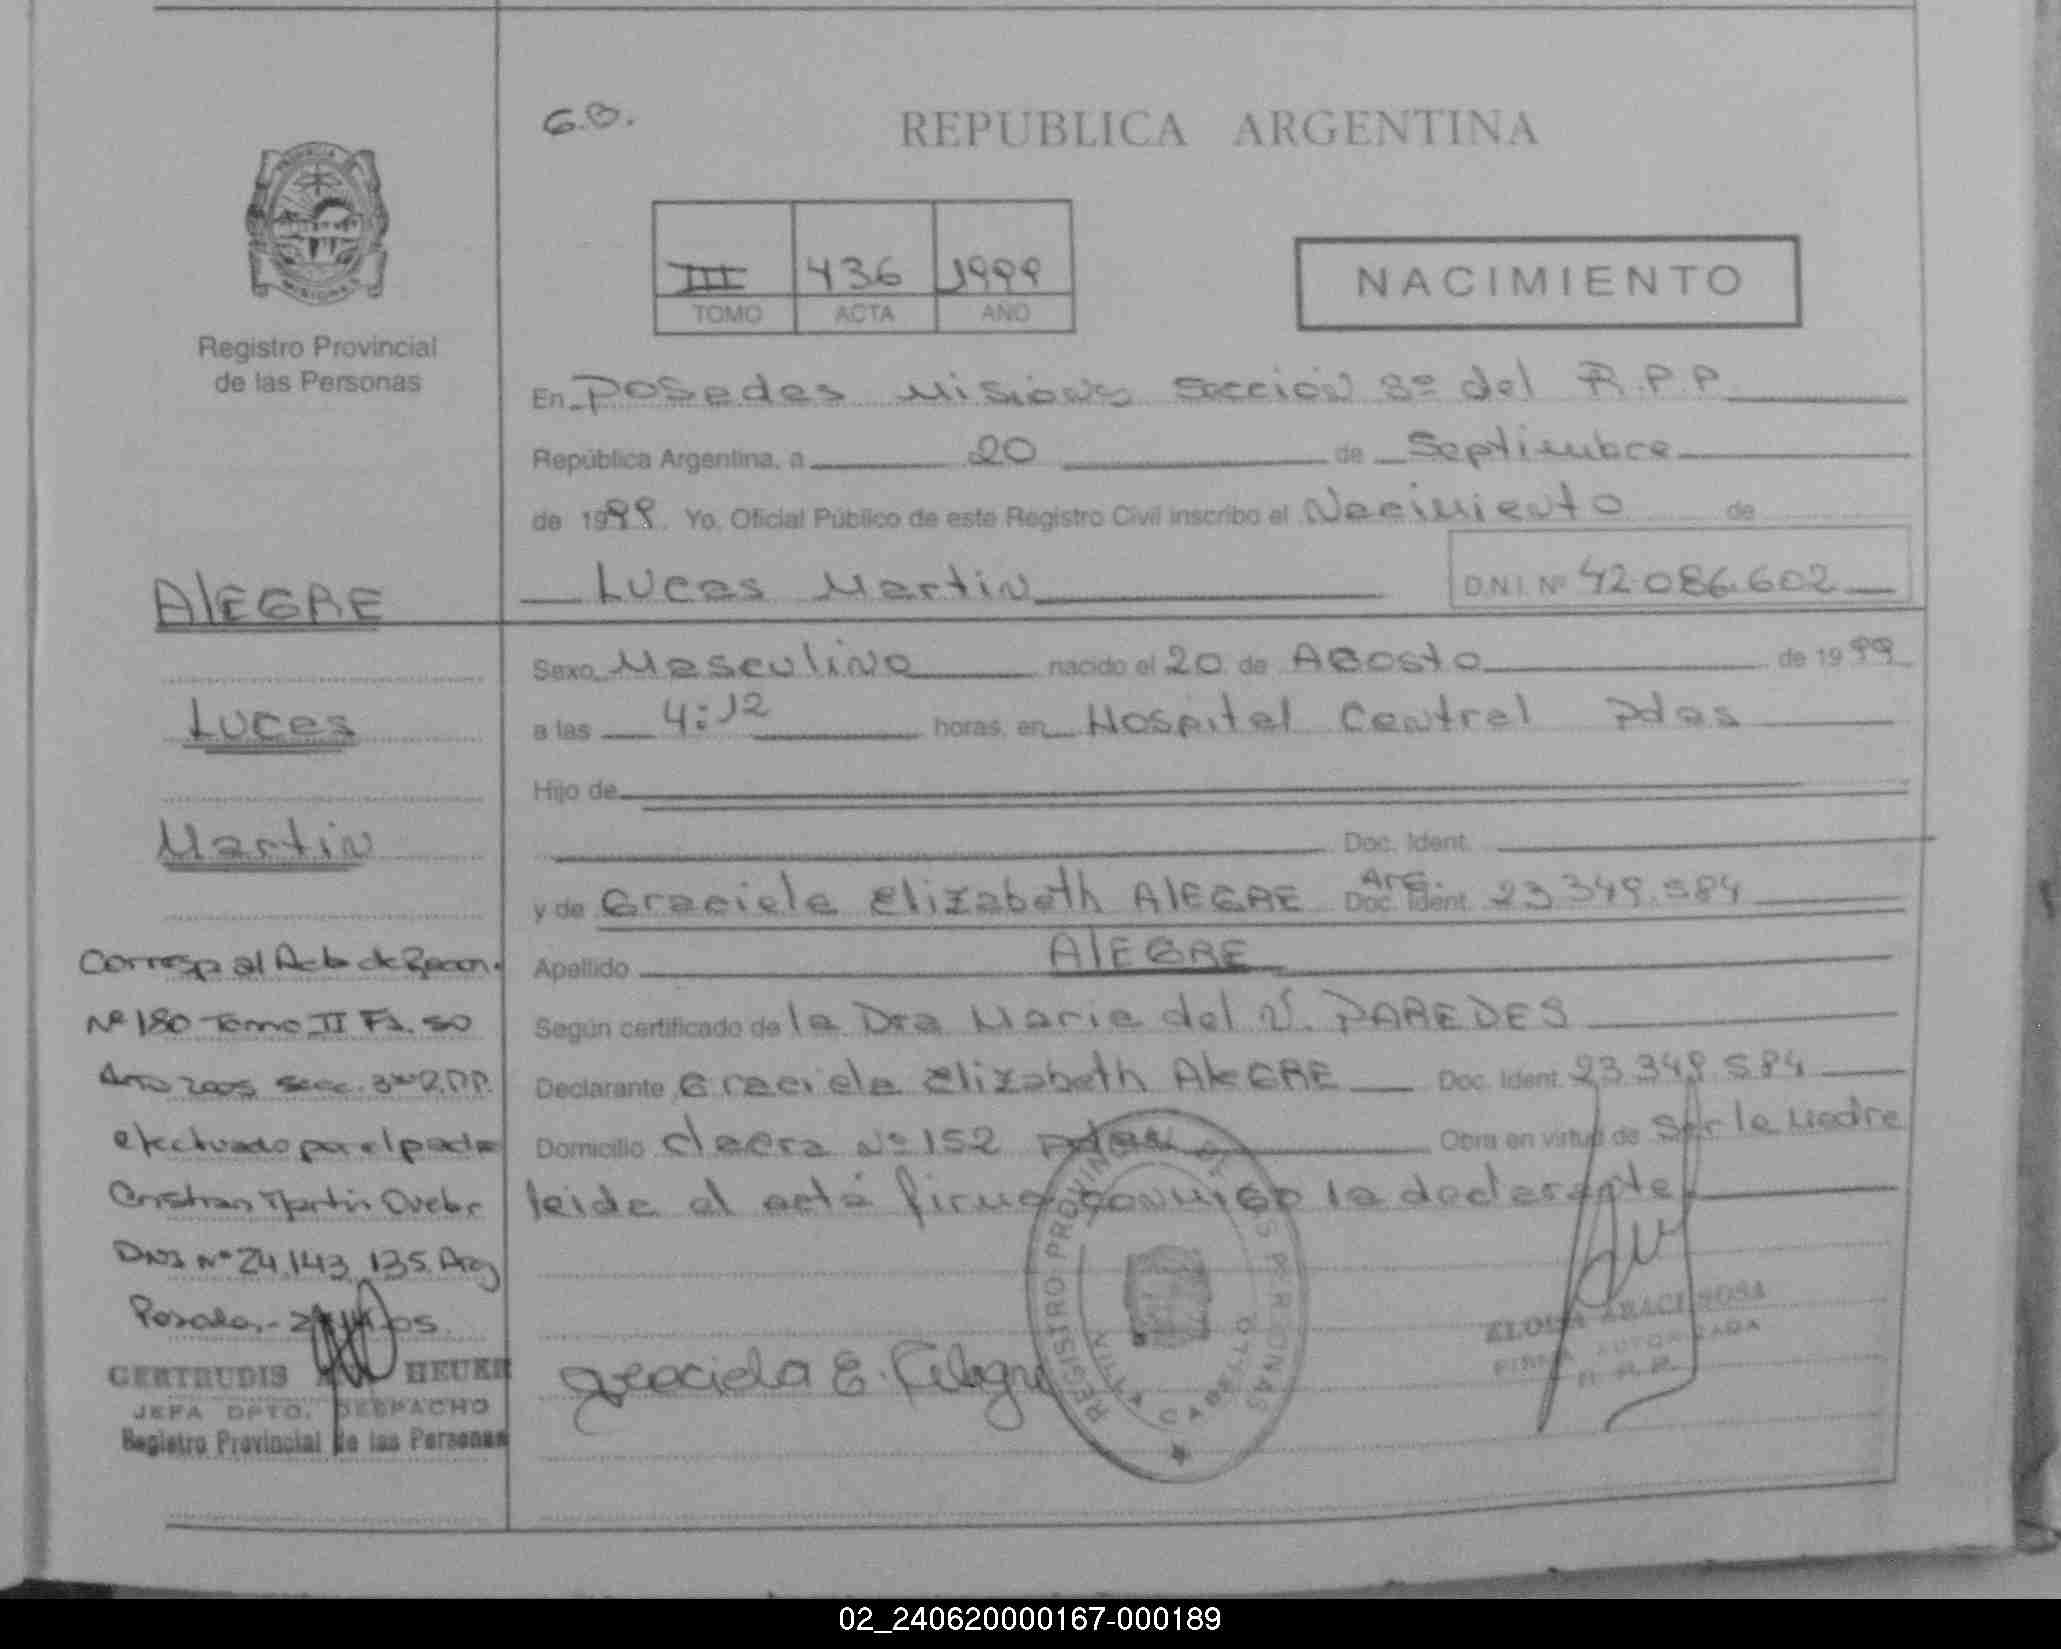 G.B.
REPUBLICA ARGENTINA
III 436 1999
TOMO ACTA AÑO
NACIMIENTO
Registro Provincial
de las Personas
En Posadas Misiones Sección 3º del R.P.P
República Argentina, a 20 de Septiembre
de 1999. Yo, Oficial Público de este Registro Civil inscribo el Nacimiento de
Lucas Martin D.N.I. Nº 42.086.602
ALEGRE
Lucas
Martin
Sexo Masculino nacido el 20 de Agosto de 1999
a las 4:12 horas, en Hospital Central Pdas
Hijo de
Doc. Ident.
y de Graciela Elizabeth AlEGRE Arg. Doc. Ident. 23.349.584
Apellido AlEGRE
Según certificado de la Dra Maria del V. PAREDES
Declarante Graciela Elizabeth AlEGRE Doc. Ident. 23.349.584
Domicilio chacra Nº 152 Pdas Obra en virtud de Ser la Madre
leida el acta firma conmigo la declarante
Corresp al Acta de Recon.
Nº 180 Tomo II Fs. 50
Año 2005 Secc. 3ra R.P.P.
efectuado por el padre
Cristian Martin
DNI Nº 24.143.135 Arg
Posadas,-
GERTRUDIS
JEFA DPTO. DESPACHO
Registro Provincial de las Personas
Graciela E. Alegre
REGISTRO PROVINCIAL DE LAS PERSONAS
CABELLO
SOSA
FIRMA AUTORIZADA
R.P.P.
02_240620000167-000189